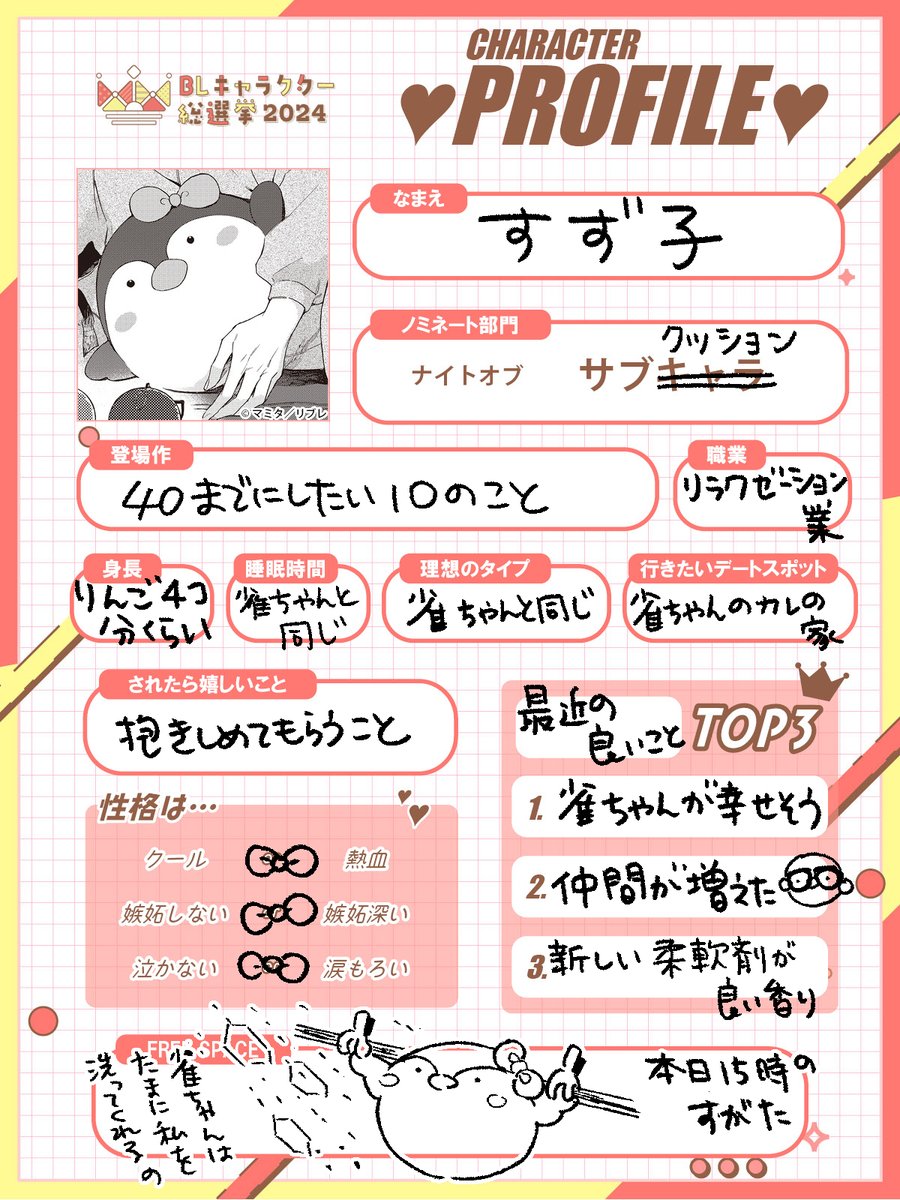 BLキャラクター
総選挙 2024
CHARACTER
PROFILE
©マミタ/リブレ
なまえ
すず子
ノミネート部門
ナイトオブ サブキャラ
クッション
登場作
40までにしたい10のこと
職業
リラクゼーション
業
身長
りんご4コ
分くらい
睡眠時間
雀ちゃんと
同じ
理想のタイプ
雀ちゃんと同じ
行きたいデートスポット
雀ちゃんのカレの
家
されたら嬉しいこと
抱きしめてもらうこと
最近の
良いこと
TOP3
1. 雀ちゃんが幸せそう
2. 仲間が増えた
3. 新しい柔軟剤が
良い香り
性格は…
クール 熱血
嫉妬しない 嫉妬深い
泣かない 涙もろい
FREE SPACE
雀ちゃんは
たまに私を
洗ってくれるの
本日15時の
すがた